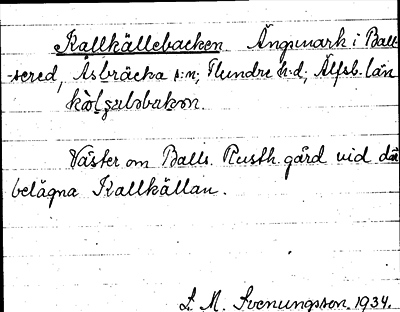 Kallkällebacken Ängsmark i Ball-
-sered, Åsbräcka s:n, Flundre h-d, Älfsb. län
Väster om Balls. Rusth. gård vid där
belägna Kallkällan.
L. M. Svenungsson. 1934.